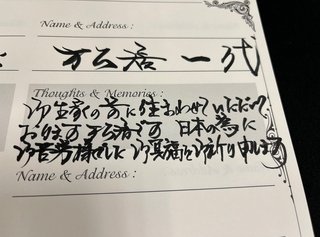 Name & Address :
一代
Thoughts & Memories :
御生家の前に住まわせていただいて
おります です 日本の為に
御苦労様でした 御冥福を御祈り申します
Name & Address :